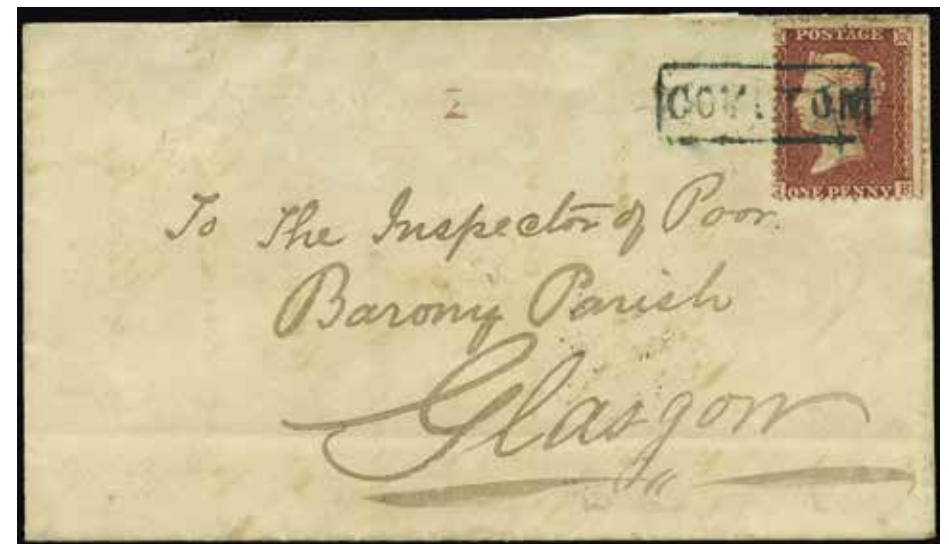 POSTAGE
ONE PENNY B
To The Inspector of Poor.
Barony Parish
Glasgow